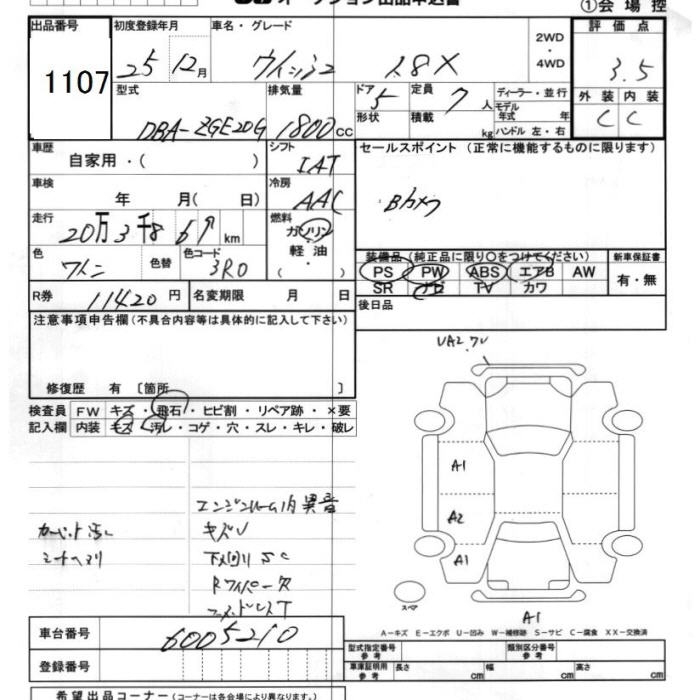 オークション出品申込書
①会場控
出品番号 初度登録年月 車名・グレード 評価点
1107 25 12月 ウィッシュ 1.8X 2WD・4WD 3.5
型式 排気量 ドア 定員 ディーラー・並行 外装 内装
DBA-ZGE20G 1800cc 5 7人 モデル年式 年 C C
形状 積載 kg ハンドル 左・右
車歴 シフト セールスポイント (正常に機能するものに限ります)
自家用・( ) IAT
車検 冷房
年 月( 日) AAC
走行 燃料
20万3千8 km ガソリン
軽油
( )
色 色替 色コード
ワイン 3R0
装備品 (純正品に限り○をつけてください) 新車保証書
PS PW ABS エアB AW 有・無
SR ナビ TV カワ
R券 11420円 名変期限 月 日 後日品
注意事項申告欄(不具合内容等は具体的に記入して下さい)
修復歴 有 〔箇所 〕
検査員 FW キズ・飛石・ヒビ割・リペア跡・×要
記入欄 内装 キズ・汚レ・コゲ・穴・スレ・キレ・破レ
エンジンルーム内異音
カーペット汚レ キズU
シートヘタリ 下回りSC
Rワイパー欠
UA2
A1
A2
A1
A1
スペア
A−キズ E−エクボ U−凹み W−補修跡 S−サビ C−腐食 XX−交換済
車台番号 6005210
登録番号
型式指定番号 参考 類別区分番号 参考
車庫証明用 参考 長さ cm 幅 cm 高さ cm
希望出品コーナー(コーナーは各会場により異なります。)